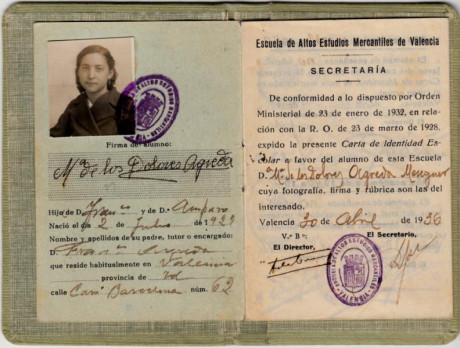 Firma del alumno:
Mª de los Dolores Agreda
Hijo de D. Franco y de Dª Amparo
Nació el día 2 de Julio de 19
Nombre y apellidos de su padre, tutor o encargado:
D. Franco Agreda
que reside habitualmente en Valencia
provincia de id
calle Barcelona núm. 62
Escuela de Altos Estudios Mercantiles de Valencia
SECRETARÍA
De conformidad a lo dispuesto por Orden
Ministerial de 23 de enero de 1932, en
relación con la R. O. de 23 de marzo de 1928,
expido la presente Carta de Identidad Es-
colar a favor del alumno de esta Escuela
D. Mª de los Dolores Agreda
cuya fotografía, firma y rúbrica son las del
interesado.
Valencia 30 de Abril de 1936
V.º B.º
El Director,
El Secretario,